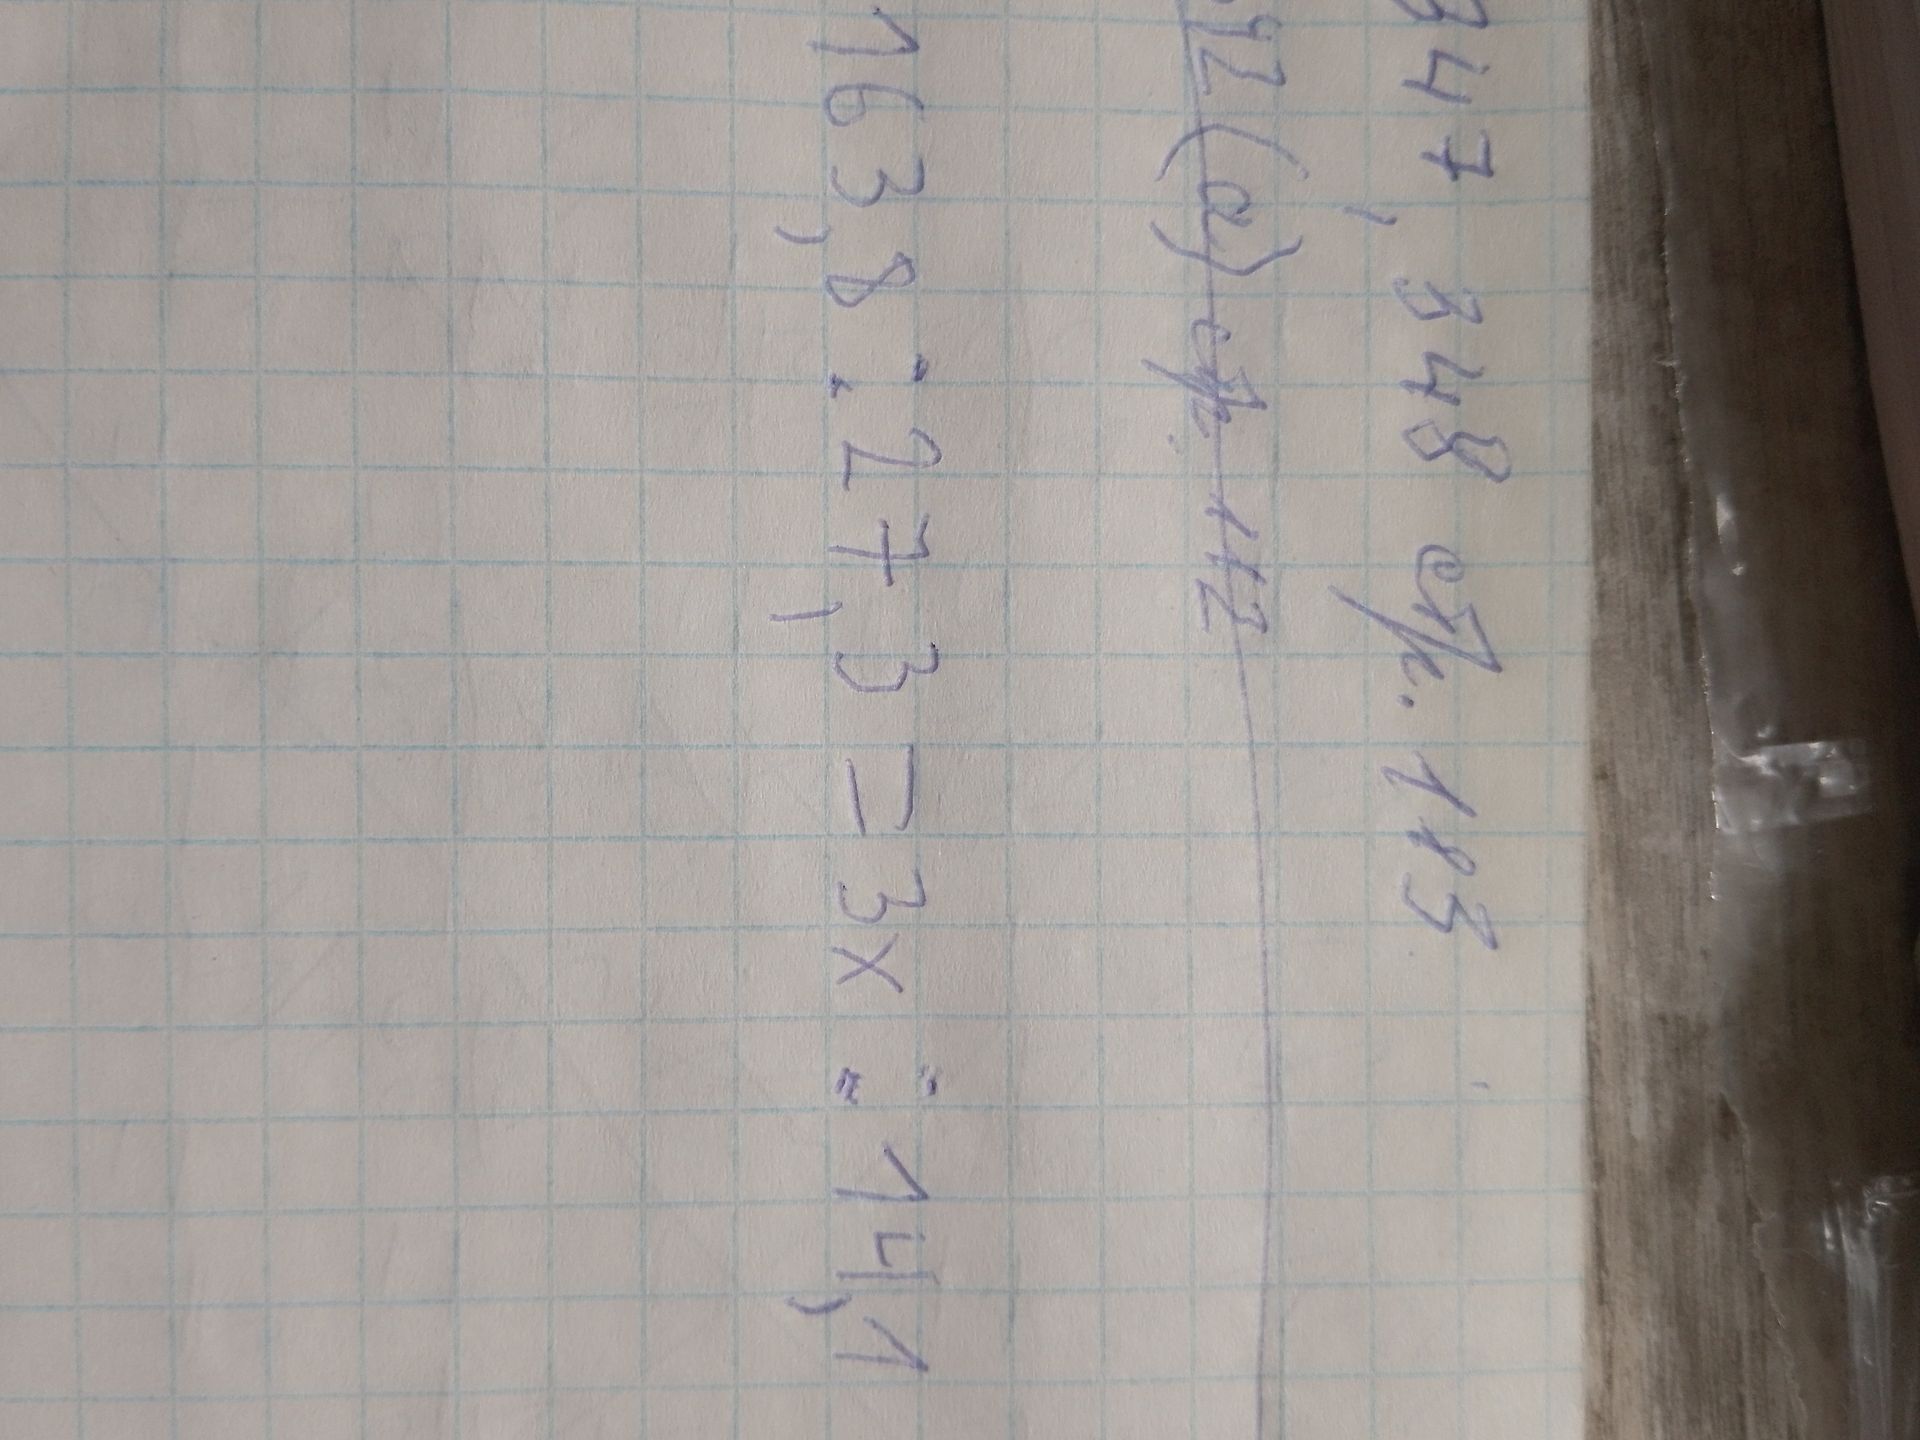 347, 348 стр. 183
92 (а) стр. 112
163,8 : 27,3 = 3x : 14,1